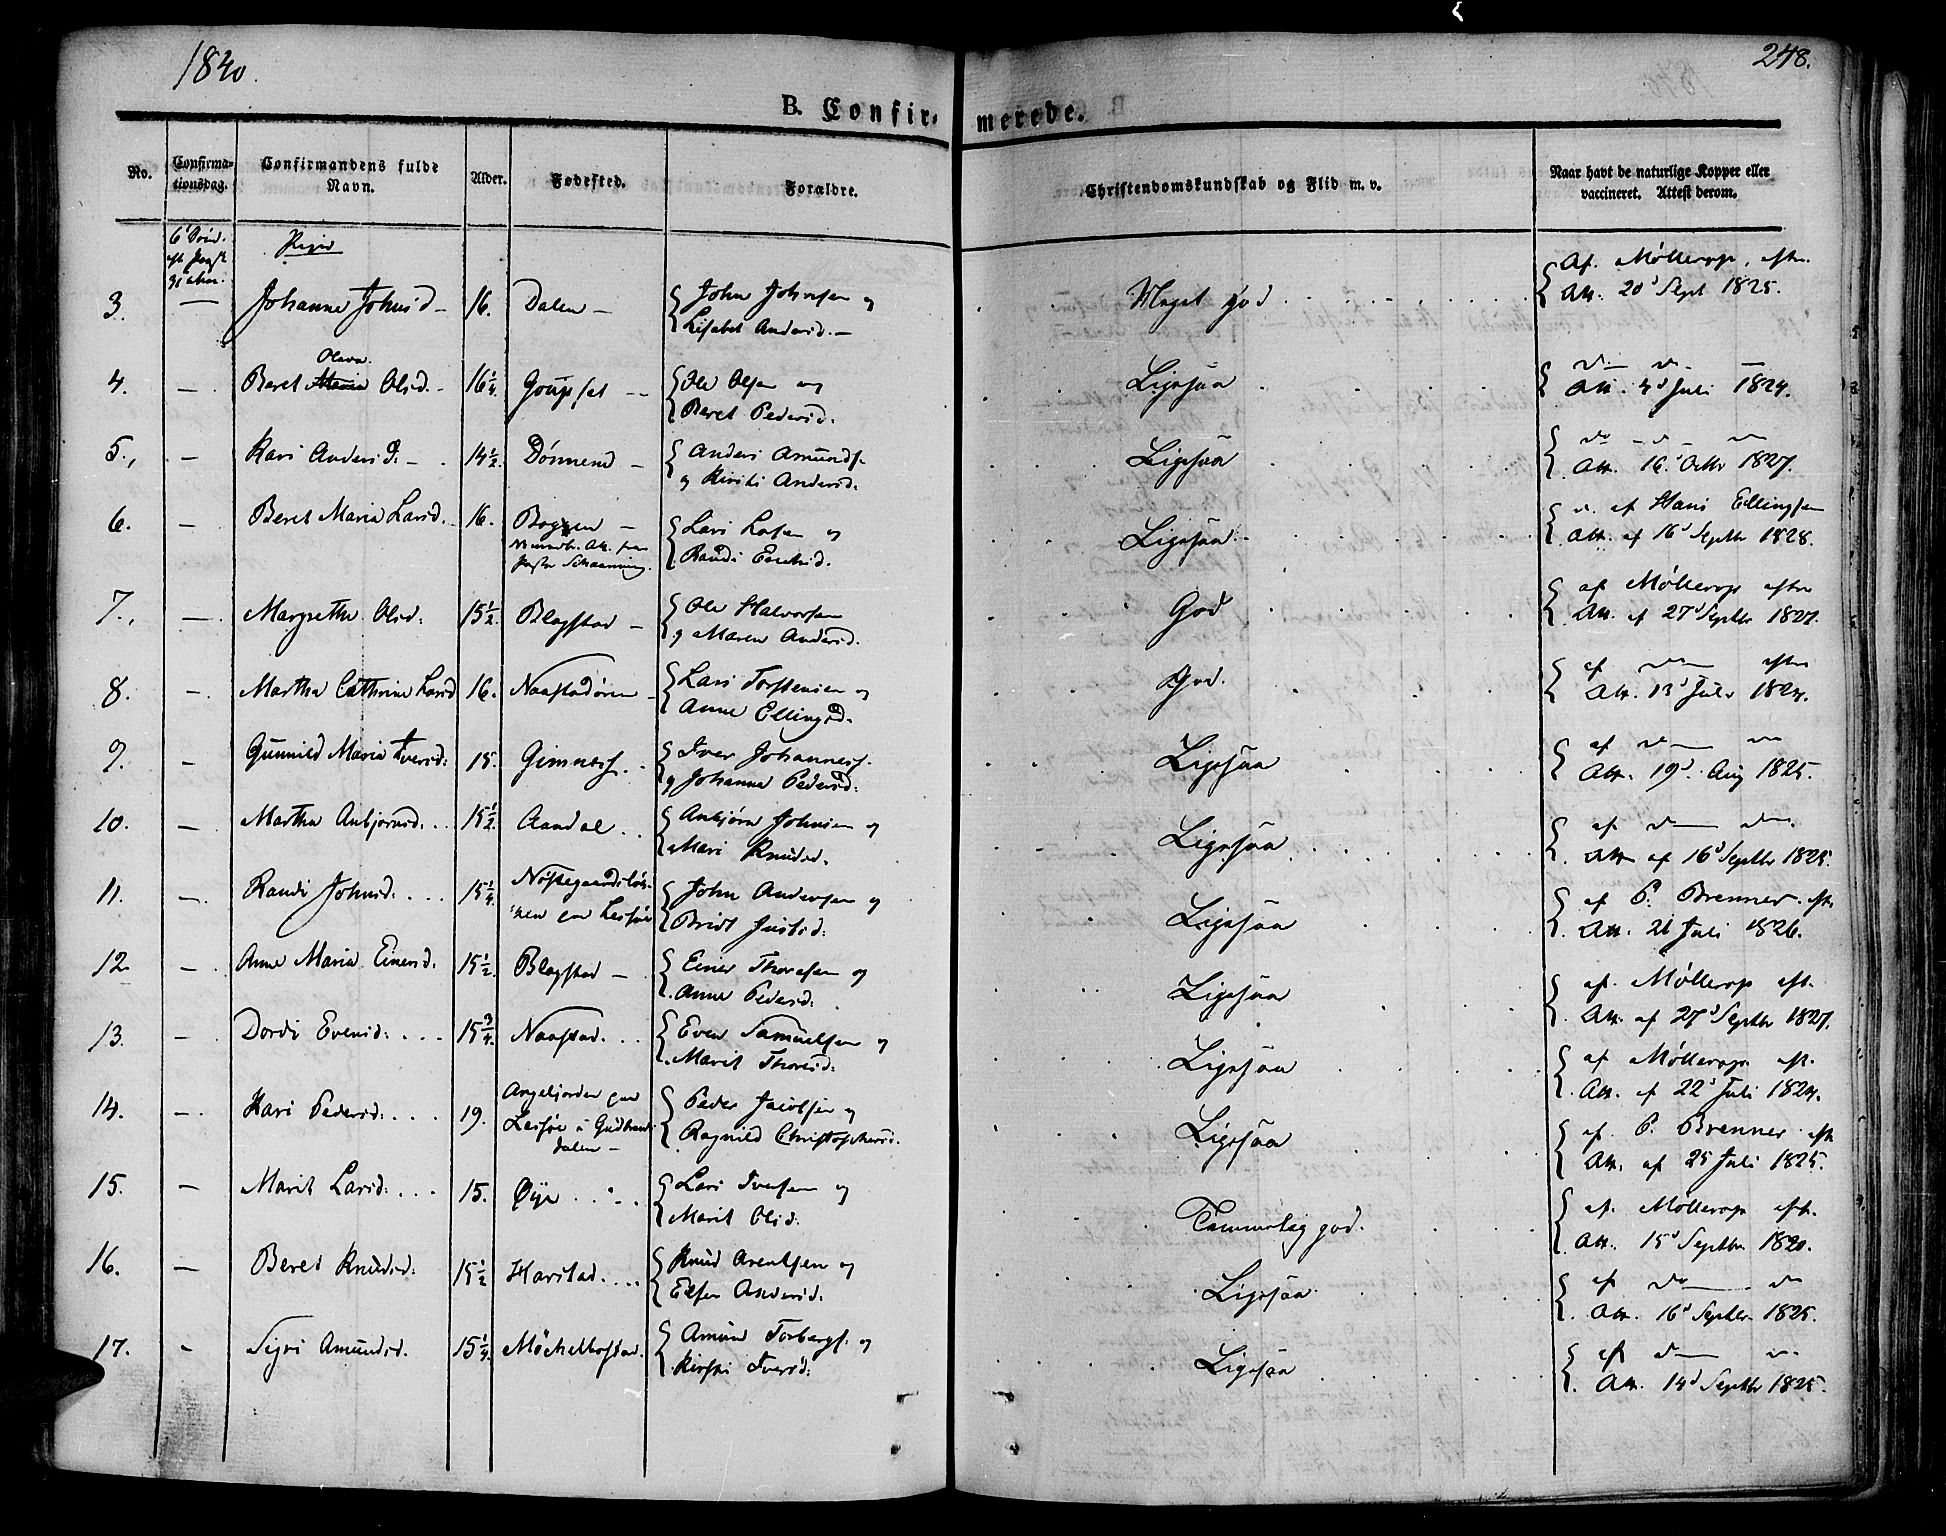 1840.
248.
B. Confir- merede.
No.
Confirma-
tionsdag.
Confirmandens fulde
Navn.
Alder.
Fødested.
Forældre.
Christendomskundskab og Flid m. v.
Naar havt de naturlige Kopper eller
vaccineret. Attest derom.
Piger
3. — Johanne Johnsd — 16. Dalen — John Johnsen og
Lisabet Andersd. —
Meget god
Af. Møllerop, eftr.
Att. 20d Sept 1825.
Olava.
4. — Beret Maria Olsd. — 16 1/4. Ole Olsen og
Beret Pedersd.
Ligesaa
Att. 4d Juli 1824.
5., — Kari Andersd: — 14 1/2. Dönnem — Anders Amunds.
og Kirsti Andersd.
Ligesaa
Att. 16d Octbr 1827.
6. — Beret Maria Larsd. 16. Boggen — Lars Larsen og
Randi
Ligesaa
af Hans Ellingsen
Att. af 16d Septbr 1828.
7., — Margrethe Olsd: 15 1/2. Blagstad — Ole Halvorsen
og Maren Andersd.
God
af Møllerop eftr
Att. af 27d Septbr 1827.
8. — Martha Cathrine Larsd 16. Naastadören — Lars Torstensen og
Anne Ellingsd.
God.
af do eftr
Att. 13d Juli 1824.
9. — Gunnild Maria Iversd: 15. Gimnes Iver Johanness.
og Johanna Pedersd:
Ligesaa
af do do
Att. 19d. Aug 1825.
10. — Martha Anbjörnsd: 15 1/2. Aandal Anbjörn Johnsen og
Mari Knudsd.
Ligesaa
af do do
Att af 16d Septbr 1825.
11. — Randi Johnsd: 15 1/4. John Andersen og
Bridt Justsd:
Ligesaa
af P. Brenner eftr
Att. 21 Juli 1826.
12. — Anne Maria Einersd: 15 1/2. Blagstad — Einer Thoresen og
Anne Pedersd:
Ligesaa
af. Møllerop eft.
Att. af 27d Septbr 1827.
13. — Dordi Evensd: 15 3/4. Naastad. Even Samuelsen og
Marit Thoresd:
Ligesaa
af Møllerop. eft.
Att. af 22d Juli 1824.
14. — Kari Pedersd: 19. Peder Jacobsen og
Lesjøe i Gudbrands
dalen — Ragnild Christophersd.
Ligesaa
af. P. Brenner eft
Att. af 25 Juli 1825.
15. — Marit Larsd: 15. Øye Lars Iversen og
Marit Olsd:
Temmelig god.
af. Møllerop eft.
Att. 15d Septbr. 1820.
16. — Beret Knudsd: 15 1/2 Harstad. Knud Arentsen og
Elsen Andersd:
Ligesaa
af do do
Att. 16d Septbr. 1825.
17. — Sigri Amundsd. 15 1/4. Möchelbostad. Amund Torbergs. og
Kirsti Iversd:
Ligesaa
af do do
Att. 14d Septbr 1825.